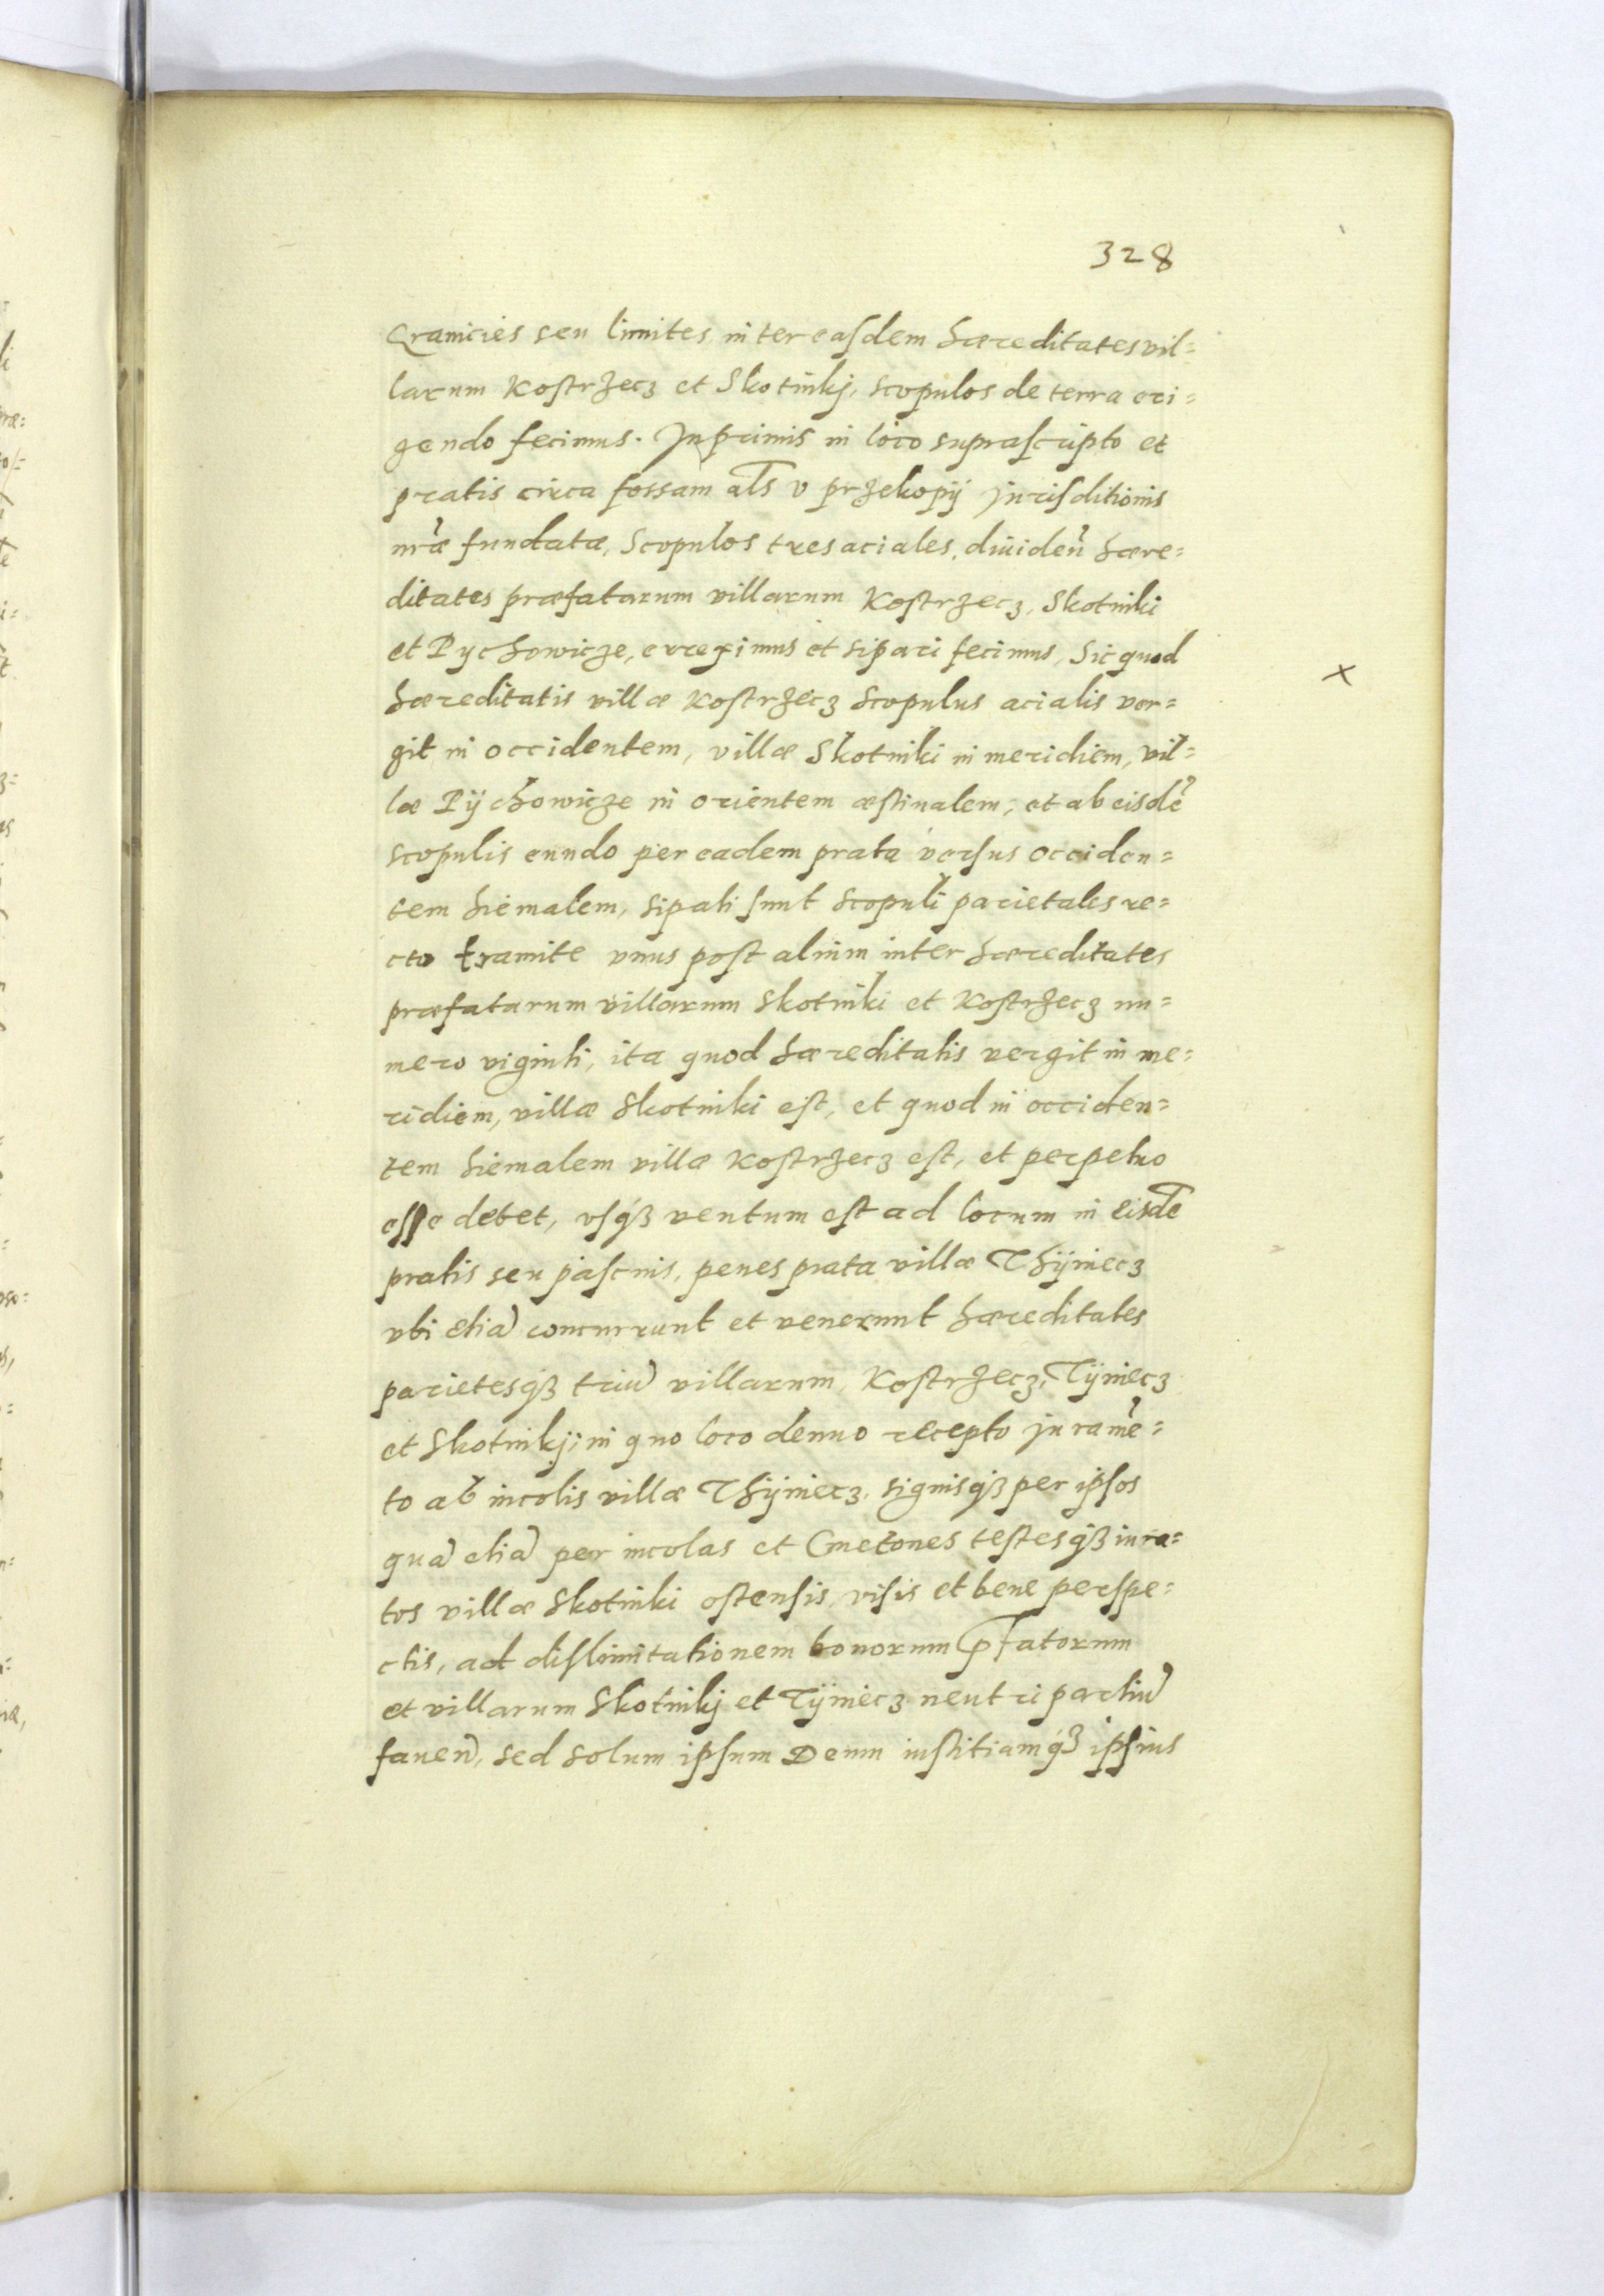 328
Graniciès seu limites inter easdem hæreditates vil=
larum Kostrzecz et Skotnikj, scopulos de terra eri=
gendo fecimus. Inprimis in loco suprascripto et
pratis circa fossam als v przekopÿ Jurisditionis
nræ fundatæ, Scopulos tres aciales, dividen hære=
ditates præfatarum villarum Kostrzecz, Skotniki
et Pychowicze, erreximus et sipari fecimus, Sic quod
hæreditatis villæ Kostrzecz Scopulus acialis ver=
git in occidentem, villæ Skotniki in meridiem, vil=
læ Pÿchowicze in orientem æstivalem, et ab eisdē
scopulis eundo per eadem prata versus occiden=
tem hiemalem, sipati sunt scopuli parietales re=
cto tramite vnus post alium inter hæreditates
præfatarum villarum Skotniki et Kostrzecz nu=
mero viginti, ita quod hæreditatis vergit in me=
ridiem, villæ Skotniki est, et quod in occiden=
tem hiemalem villæ Kostrzecz est, et perpetuo
esse debet, vsqȝ ventum est ad locum in eisdē
pratis seu pascuis, penes prata villæ Thÿniecz
vbi etiā concurrunt et venerunt hæreditates
parietesqȝ triū villarum Kostrzecz, Tÿniecz
et Skotnikj; in quo loco denuo recepto Juramē=
to ab incolis villæ Thÿniecz, signisqȝ per ipsos
quā etiā per incolas et Cmetones testesqȝ iura=
tos villæ Skotniki ostensis, visis et bene perspe=
ctis, ad dislimitationem bonorum pfatorum
et villarum Skotnikj et Tÿniecz neutri partiū
faven, sed solum ipsum Deum iustitiamqȝ ipsius